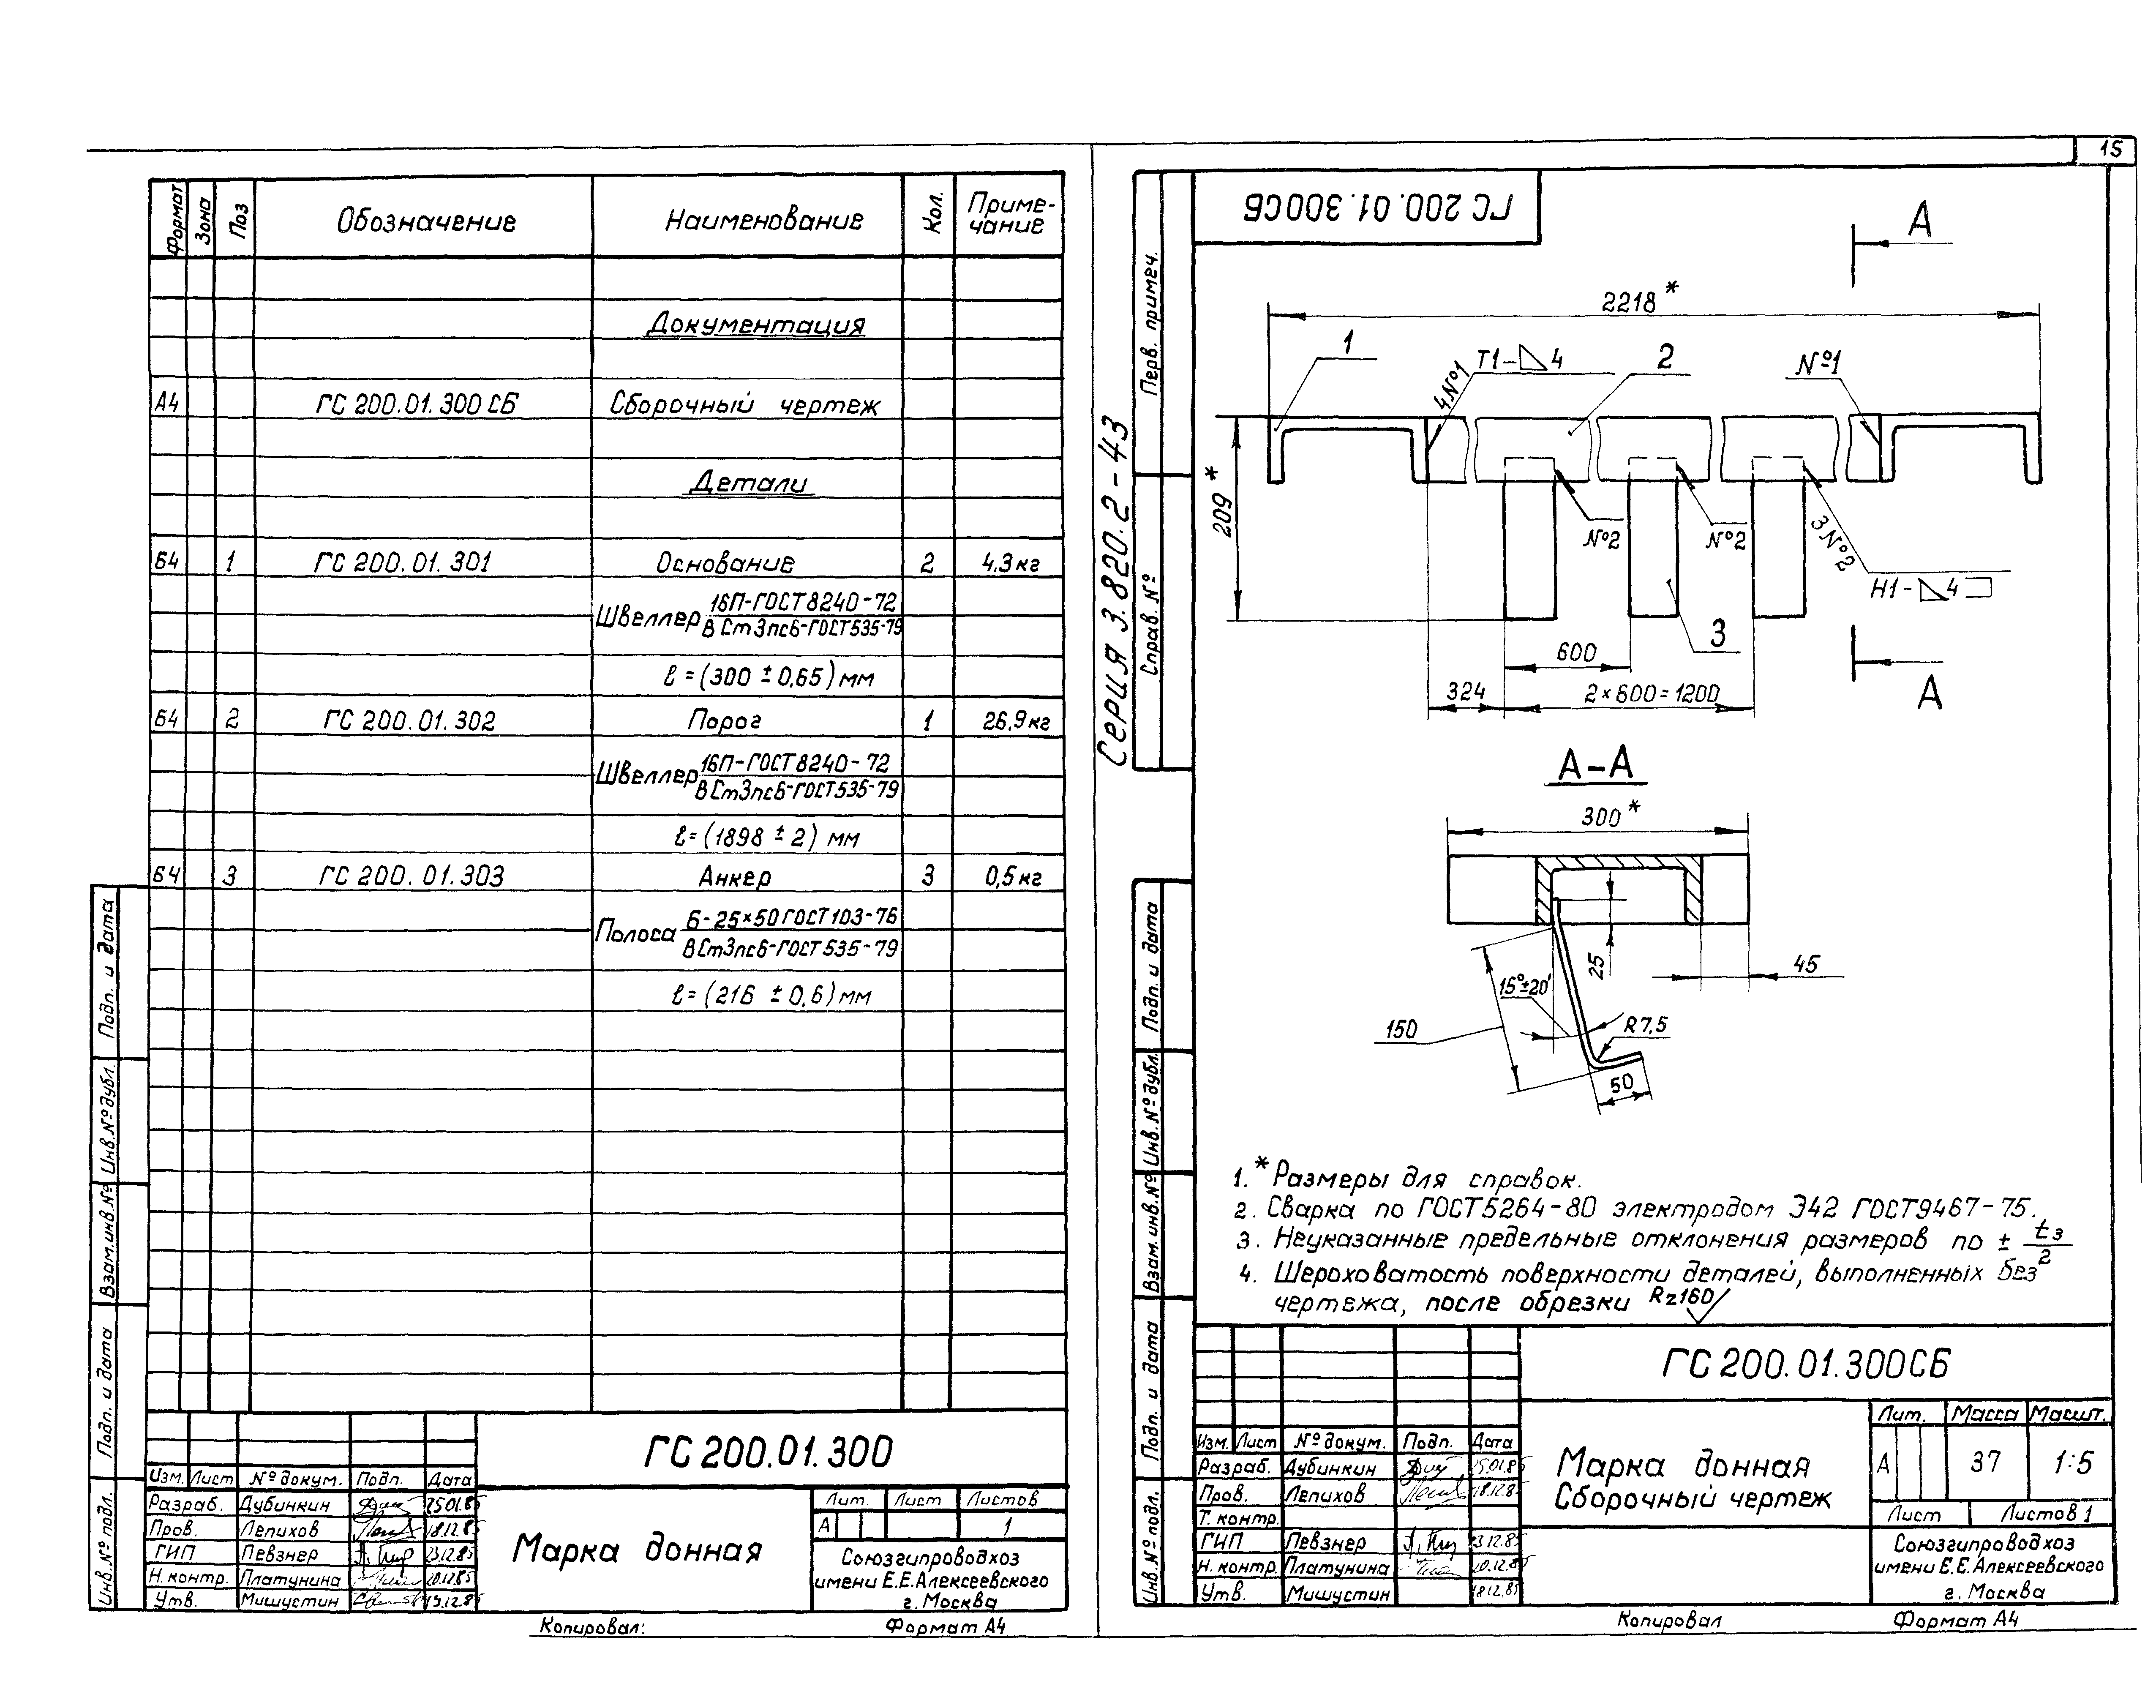 15
Формат
Зона
Поз
Обозначение
Наименование
Кол.
Приме-
чание
Документация
А4 ГС 200.01.300 СБ Сборочный чертеж
Детали
Б4 1 ГС 200.01.301 Основание 2 4.3 кг
Швеллер 16П-ГОСТ 8240-72
ВСт3пс6-ГОСТ 535-79
ℓ = (300 ± 0,65) мм
Б4 2 ГС 200.01.302 Порог 1 26,9 кг
Швеллер 16П-ГОСТ 8240-72
ВСт3пс6-ГОСТ 535-79
ℓ = (1898 ± 2) мм
Б4 3 ГС 200.01.303 Анкер 3 0,5 кг
Полоса Б-25×50 ГОСТ 103-76
ВСт3пс6-ГОСТ 535-79
ℓ = (216 ± 0,6) мм
Подп. и дата
Инв. № дубл.
Взам. инв. №
Подп. и дата
Инв. № подл.
ГС 200.01.300
Изм. Лист № докум. Подп. Дата
Разраб. Дубинкин
Пров. Лепихов 18.12.85
ГИП Певзнер 23.12.85
Н. контр. Платунина 20.12.85
Утв. Мишустин
Марка донная
Лит. Лист Листов
А 1
Союзгипроводхоз
имени Е.Е.Алексеевского
г. Москва
Копировал:
Формат А4
Серия 3.820.2-43
Перв. примеч.
Справ. №
Подп. и дата
Инв. № дубл.
Взам. инв. №
Подп. и дата
Инв. № подл.
ГС 200.01.300СБ
А
2218*
1
4№1
Т1-◺4
2
№1
209*
№2
№2
3№2
Н1-◺4
3
600
324
2×600=1200
А
А-А
300*
25
45
15°±20'
150
R7,5
50
1. *Размеры для справок.
2. Сварка по ГОСТ 5264-80 электродом Э42 ГОСТ 9467-75.
3. Неуказанные предельные отклонения размеров по ± t3/2
4. Шероховатость поверхности деталей, выполненных без
чертежа, после обрезки Rz160
ГС 200.01.300СБ
Изм. Лист № докум. Подп. Дата
Разраб. Дубинкин
Пров. Лепихов 18.12.85
Т. контр.
ГИП Певзнер 23.12.85
Н. контр. Платунина 20.12.85
Утв. Мишустин 18.12.85
Марка донная
Сборочный чертеж
Лит. Масса Масшт.
А 37 1:5
Лист Листов 1
Союзгипроводхоз
имени Е.Е.Алексеевского
г. Москва
Копировал
Формат А4